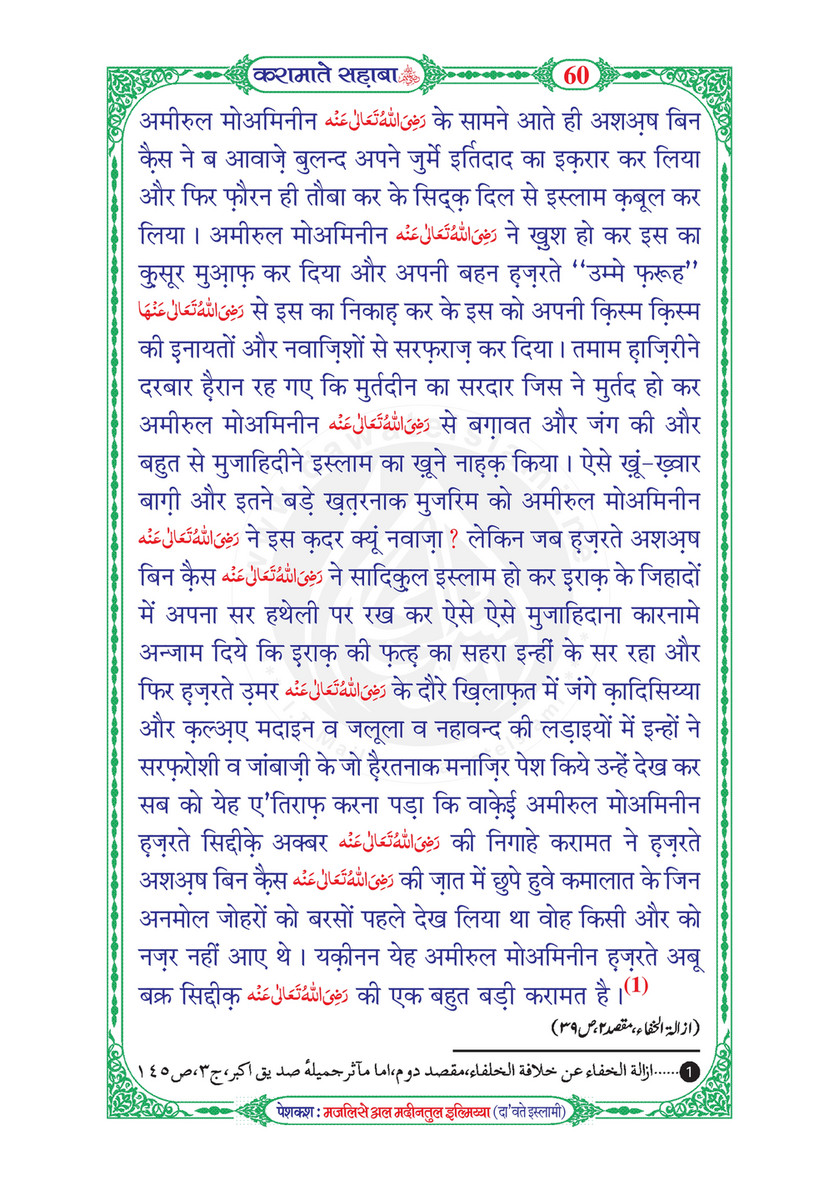 करामाते सह़ाबा
60
अमीरुल मोअमिनीन رَضِیَ اللّٰہُ تَعَالٰی عَنْہ के सामने आते ही अशअ़ष बिन
कै़स ने ब आवाजे़ बुलन्द अपने जुर्मे इर्तिदाद का इक़रार कर लिया
और फिर फ़ौरन ही तौबा कर के सिद्क़ दिल से इस्लाम क़बूल कर
लिया । अमीरुल मोअमिनीन رَضِیَ اللّٰہُ تَعَالٰی عَنْہ ने ख़ुश हो कर इस का
कु़सूर मुआ़फ़ कर दिया और अपनी बहन ह़ज़रते ‘‘उम्मे फ़रूह’’
رَضِیَ اللّٰہُ تَعَالٰی عَنْہَا से इस का निकाह़ कर के इस को अपनी क़िस्म क़िस्म
की इनायतों और नवाज़िशों से सरफ़राज़ कर दिया । तमाम ह़ाज़िरीने
दरबार है़रान रह गए कि मुर्तदीन का सरदार जिस ने मुर्तद हो कर
अमीरुल मोअमिनीन رَضِیَ اللّٰہُ تَعَالٰی عَنْہ से बग़ावत और जंग की और
बहुत से मुजाहिदीने इस्लाम का ख़ूने नाह़क़ किया । ऐसे ख़ूं-ख़्वार
बाग़ी और इतने बड़े ख़त़रनाक मुजरिम को अमीरुल मोअमिनीन
رَضِیَ اللّٰہُ تَعَالٰی عَنْہ ने इस क़दर क्यूं नवाज़ा ? लेकिन जब ह़ज़रते अशअ़ष
बिन कै़स رَضِیَ اللّٰہُ تَعَالٰی عَنْہ ने सादिकु़ल इस्लाम हो कर इराक़ के जिहादों
में अपना सर हथेली पर रख कर ऐसे ऐसे मुजाहिदाना कारनामे
अन्जाम दिये कि इराक़ की फ़त्ह़ का सहरा इन्हीं के सर रहा और
फिर ह़ज़रते उ़मर رَضِیَ اللّٰہُ تَعَالٰی عَنْہ के दौरे ख़िलाफ़त में जंगे क़ादिसिय्या
और क़ल्अ़ए मदाइन व जलूला व नहावन्द की लड़ाइयों में इन्हों ने
सरफ़रोशी व जांबाज़ी के जो है़रतनाक मनाज़िर पेश किये उन्हें देख कर
सब को येह ए’तिराफ़ करना पड़ा कि वाके़ई अमीरुल मोअमिनीन
ह़ज़रते सिद्दीके़ अक्बर رَضِیَ اللّٰہُ تَعَالٰی عَنْہ की निगाहे करामत ने ह़ज़रते
अशअ़ष बिन कै़स رَضِیَ اللّٰہُ تَعَالٰی عَنْہ की ज़ात में छुपे हुवे कमालात के जिन
अनमोल जोहरों को बरसों पहले देख लिया था वोह किसी और को
नज़र नहीं आए थे । यक़ीनन येह अमीरुल मोअमिनीन ह़ज़रते अबू
बक्र सिद्दीक़ رَضِیَ اللّٰہُ تَعَالٰی عَنْہ की एक बहुत बड़ी करामत है ।(1)
(ازالۃ الخفاء، مقصد۲، ص۳۹)
1......ازالة الخفاء عن خلافة الخلفاء، مقصد دوم، اما مآثر جميلۂ صديق اكبر، ج٣، ص١٤٥
पेशकश : मजलिसे अल मदीनतुल इल्मिय्या (दा’वते इस्लामी)